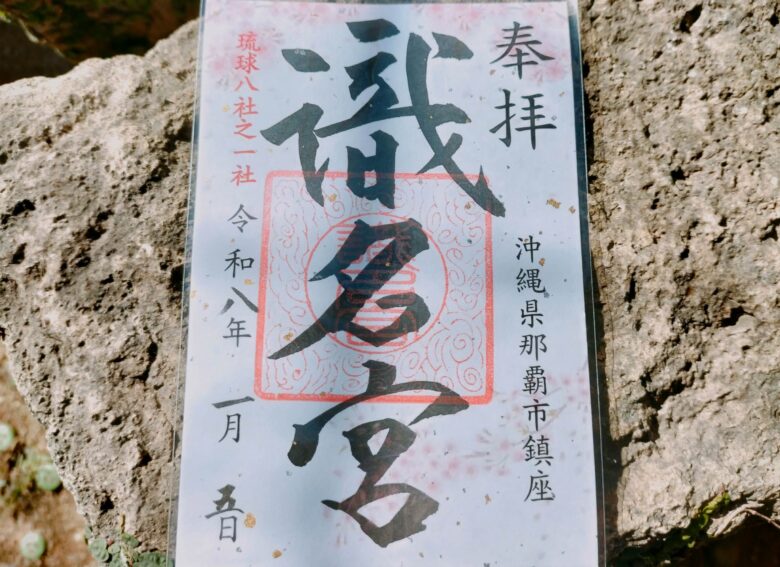 奉拝
沖縄県那覇市鎮座
識名宮
琉球八社之一社
令和八年
一月
五日